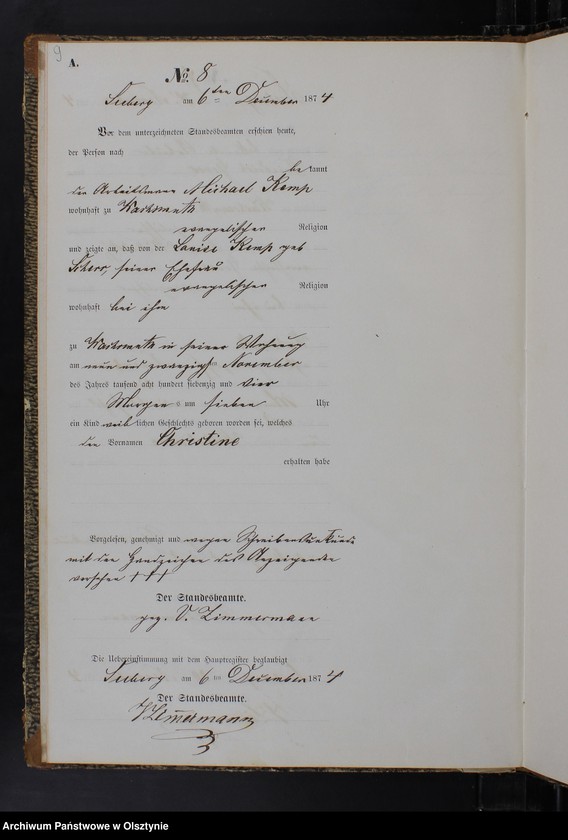 9
A.
No. 8
Seeberg am 6ten December 1874
Vor dem unterzeichneten Standesbeamten erschien heute,
der Person nach
bekannt
der Arbeitsmann Michael Kemp
wohnhaft zu
evangelischer Religion
und zeigte an, daß von der Louise Kemp geb
Scherr, seiner Ehefrau
evangelischer Religion
wohnhaft bei ihm
zu in seiner Wohnung
am neun und zwanzigsten November
des Jahres tausend acht hundert siebenzig und vier
Morgens um sieben Uhr
ein Kind weiblichen Geschlechts geboren worden sei, welches
den Vornamen Christine
erhalten habe
Vorgelesen, genehmigt und wegen Schreibensunkunde
mit den Handzeichen des Anzeigenden
versehen + + +
Der Standesbeamte.
gez. V. Zimmermann
Die Uebereinstimmung mit dem Hauptregister beglaubigt
Seeberg am 6ten December 1874
Der Standesbeamte.
VZimmermann
Archiwum Państwowe w Olsztynie